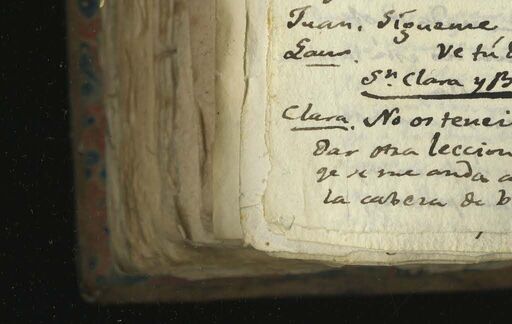 Juan. Sígueme
Laur. Ve tú
Sn. Clara y B
Clara. No os tenei
Dar otra leccion
qe se me anda a
la cabeza de b